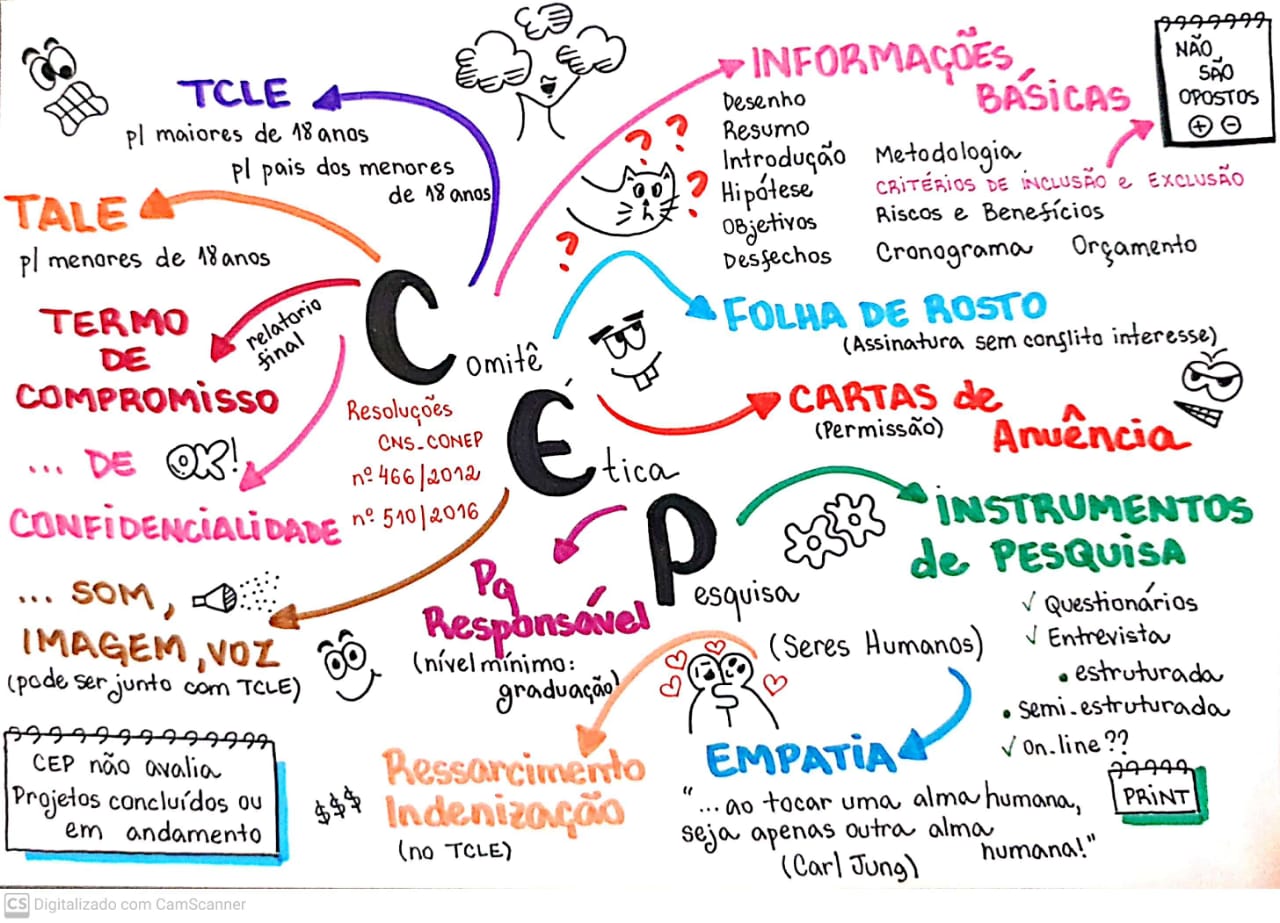 TCLE
p/ maiores de 18 anos
p/ pais dos menores
de 18 anos
TALE
p/ menores de 18 anos
TERMO
DE
COMPROMISSO
relatorio
final
... DE OK!
CONFIDENCIALIDADE
... SOM,
IMAGEM, VOZ
(pode ser junto com TCLE)
CEP não avalia
Projetos concluídos ou
em andamento
Comitê
Ética
Pesquisa
(Seres Humanos)
Resoluções
CNS_CONEP
nº 466/2012
nº 510/2016
Pq
Responsável
(nível mínimo:
graduação)
$$$
Ressarcimento
Indenização
(no TCLE)
INFORMAÇÕES
BÁSICAS
Desenho
Resumo
Introdução
Hipótese
Objetivos
Desfechos
Metodologia
CRITÉRIOS DE INCLUSÃO e EXCLUSÃO
Riscos e Benefícios
Cronograma Orçamento
? ? ? ?
NÃO
SÃO
OPOSTOS
+ -
FOLHA DE ROSTO
(Assinatura sem conflito interesse)
CARTAS de
(Permissão)
Anuência
INSTRUMENTOS
de PESQUISA
✓ Questionários
✓ Entrevista
• estruturada
• semi-estruturada
✓ On.line??
PRINT
EMPATIA
"... ao tocar uma alma humana,
seja apenas outra alma
humana!"
(Carl Jung)
CS Digitalizado com CamScanner